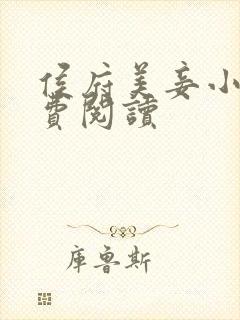 侯府美妾小
費閱讀
庫魯斯